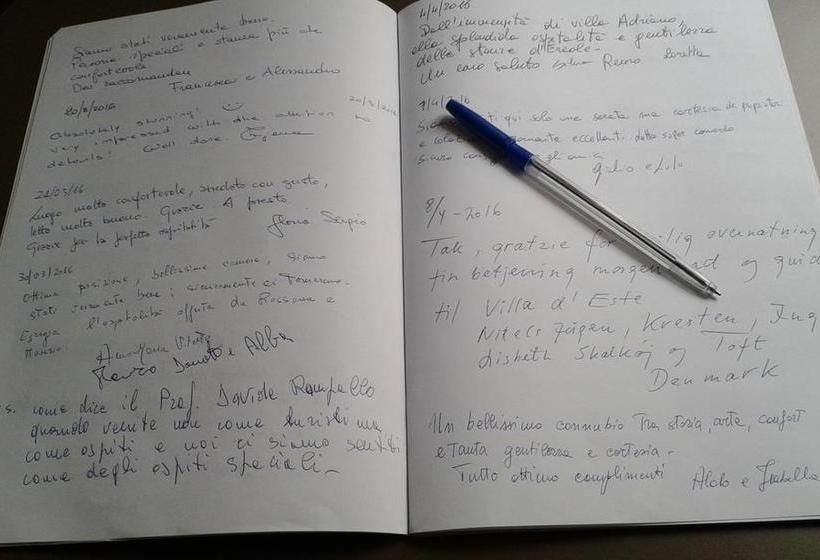 Siamo stati veramente bene.
Persone speciali e stanza più che
confortevole
Da raccomandare
Francesca e Alessandro
20/3/2016
20/3/2016
Absolutely stunning!
very impressed with the attention to
details! Well done.
21/03/16
Luogo molto confortevole, arredato con gusto,
letto molto buono. Grazie A presto.
Grazie per la perfetta ospitalità
Sergio
30/03/2016
Ottima posizione, bellissime camere, siamo
stati veramente bene; sicuramente ci torneremo.
l'ospitalità offerta da Rossana e
AnnaMaria
Donato e Alba
s. come dice il Prof. Davide Rampello
quando venite non come turisti ma
come ospiti e noi ci siamo sentiti
come degli ospiti speciali
4/4/2016
Dall'immensità di villa Adriano,
alla splendida ospitalità e gentilezza
delle stanze d'Ercole.
Un caro saluto Remo Loretta
qui solo una serata ma cortesia
e eccellenti
gli amici
Giulio e Lilo
8/4-2016
Tak, gratzie for overnatning
fin betjening morgen og guid
til Villa d'Este
Niels Jörgen, Kresten, Ing
Lisbeth Skalkøj og Toft
Denmark
Un bellissimo connubio tra storia, arte, confort
e tanta gentilezza e cortesia.
Tutto ottimo complimenti
Aldo e Isabella